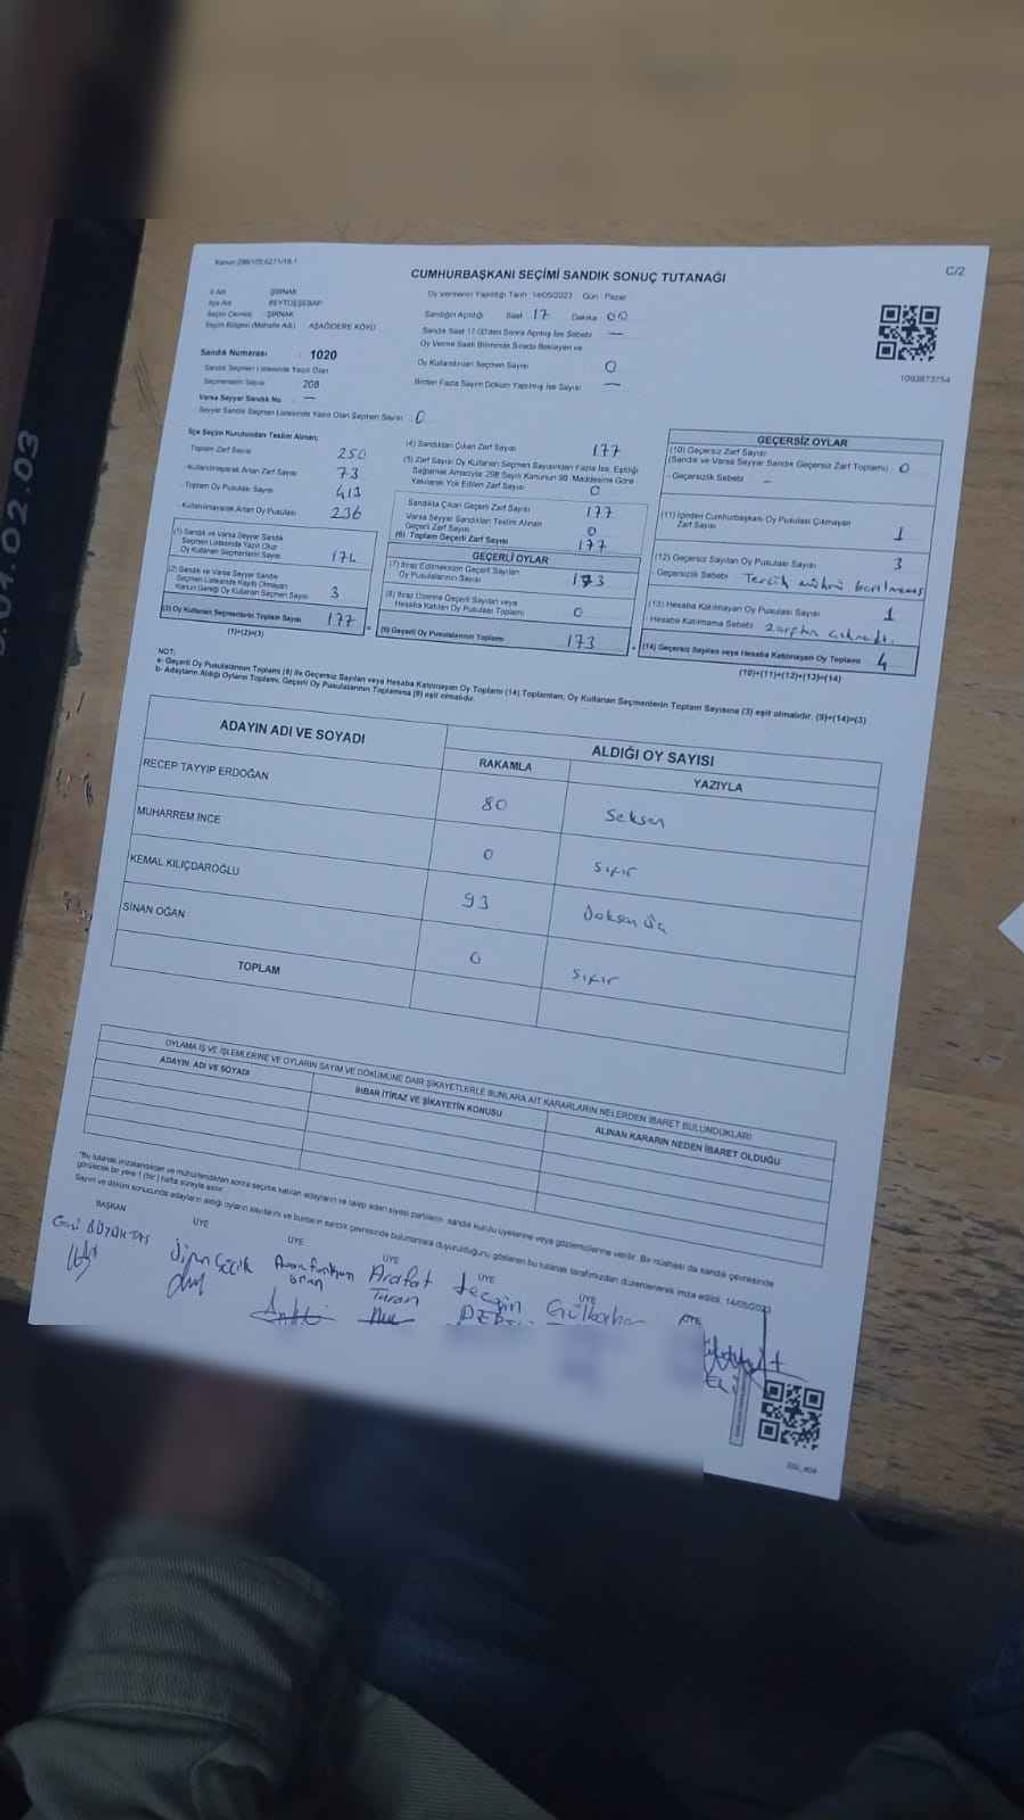 Kanun:298/105;6271/18-1
C/2
CUMHURBAŞKANI SEÇİMİ SANDIK SONUÇ TUTANAĞI
İl Adı : ŞIRNAK
İlçe Adı : BEYTÜŞŞEBAP
Seçim Çevresi : ŞIRNAK
Seçim Bölgesi (Mahalle Adı) : AŞAĞIDERE KÖYÜ
Oy Vermenin Yapıldığı Tarih : 14/05/2023 Gün : Pazar
Sandığın Açıldığı Saat : 17 Dakika : 00
Sandık Saat 17.00'den Sonra Açılmış İse Sebebi : —
Oy Verme Saati Bitiminde Sırada Bekleyen ve
Oy Kullandırılan Seçmen Sayısı : 0
Birden Fazla Sayım Döküm Yapılmış İse Sayısı : —
1093873754
Sandık Numarası : 1020
Sandık Seçmen Listesinde Yazılı Olan
Seçmenlerin Sayısı : 208
Varsa Seyyar Sandık No : —
Seyyar Sandık Seçmen Listesinde Yazılı Olan Seçmen Sayısı : 0
İlçe Seçim Kurulundan Teslim Alınan;
Toplam Zarf Sayısı 250
-Kullanılmayarak Artan Zarf Sayısı 73
-Toplam Oy Pusulası Sayısı 413
-Kullanılmayarak Artan Oy Pusulası 236
(1) Sandık ve Varsa Seyyar Sandık
Seçmen Listesinde Yazılı Olup
Oy Kullanan Seçmenlerin Sayısı 174
(2) Sandık ve Varsa Seyyar Sandık
Seçmen Listesinde Kayıtlı Olmayan
Kanun Gereği Oy Kullanan Seçmen Sayısı 3
(3) Oy Kullanan Seçmenlerin Toplam Sayısı 177
(1)+(2)=(3)
(4) Sandıktan Çıkan Zarf Sayısı 177
(5) Zarf Sayısı Oy Kullanan Seçmen Sayısından Fazla İse, Eşitliği
Sağlamak Amacıyla 298 Sayılı Kanunun 98. Maddesine Göre
Yakılarak Yok Edilen Zarf Sayısı 0
Sandıkta Çıkan Geçerli Zarf Sayısı 177
Varsa Seyyar Sandıktan Teslim Alınan
Geçerli Zarf Sayısı 0
(6) Toplam Geçerli Zarf Sayısı 177
GEÇERLİ OYLAR
(7) İtiraz Edilmeksizin Geçerli Sayılan
Oy Pusulalarının Sayısı 173
(8) İtiraz Üzerine Geçerli Sayılan veya
Hesaba Katılan Oy Pusulası Toplamı 0
(9) Geçerli Oy Pusulalarının Toplamı 173
GEÇERSİZ OYLAR
(10) Geçersiz Zarf Sayısı
(Sandık ve Varsa Seyyar Sandık Geçersiz Zarf Toplamı) : 0
- Geçersizlik Sebebi : —
(11) İçinden Cumhurbaşkanı Oy Pusulası Çıkmayan
Zarf Sayısı 1
(12) Geçersiz Sayılan Oy Pusulası Sayısı 3
Geçersizlik Sebebi : Tercih mührü
(13) Hesaba Katılmayan Oy Pusulası Sayısı 1
Hesaba Katılmama Sebebi :
(14) Geçersiz Sayılan veya Hesaba Katılmayan Oy Toplamı 4
(10)+(11)+(12)+(13)=(14)
NOT:
a- Geçerli Oy Pusulalarının Toplamı (9) ile Geçersiz Sayılan veya Hesaba Katılmayan Oy Toplamı (14) Toplamları, Oy Kullanan Seçmenlerin Toplam Sayısına (3) eşit olmalıdır. (9)+(14)=(3)
b- Adayların Aldığı Oyların Toplamı, Geçerli Oy Pusulalarının Toplamına (9) eşit olmalıdır.
ADAYIN ADI VE SOYADI
ALDIĞI OY SAYISI
RAKAMLA YAZIYLA
RECEP TAYYİP ERDOĞAN 80 Seksen
MUHARREM İNCE 0 Sıfır
KEMAL KILIÇDAROĞLU 93 Doksan üç
SİNAN OĞAN 0 Sıfır
TOPLAM
OYLAMA İŞ VE İŞLEMLERİNE VE OYLARIN SAYIM VE DÖKÜMÜNE DAİR ŞİKAYETLERLE BUNLARA AİT KARARLARIN NELERDEN İBARET BULUNDUKLARI
ADAYIN ADI VE SOYADI
İHBAR İTİRAZ VE ŞİKAYETİN KONUSU
ALINAN KARARIN NEDEN İBARET OLDUĞU
BAŞKAN ÜYE ÜYE ÜYE ÜYE ÜYE
Arafat Tezgin Gülbahar
Turan